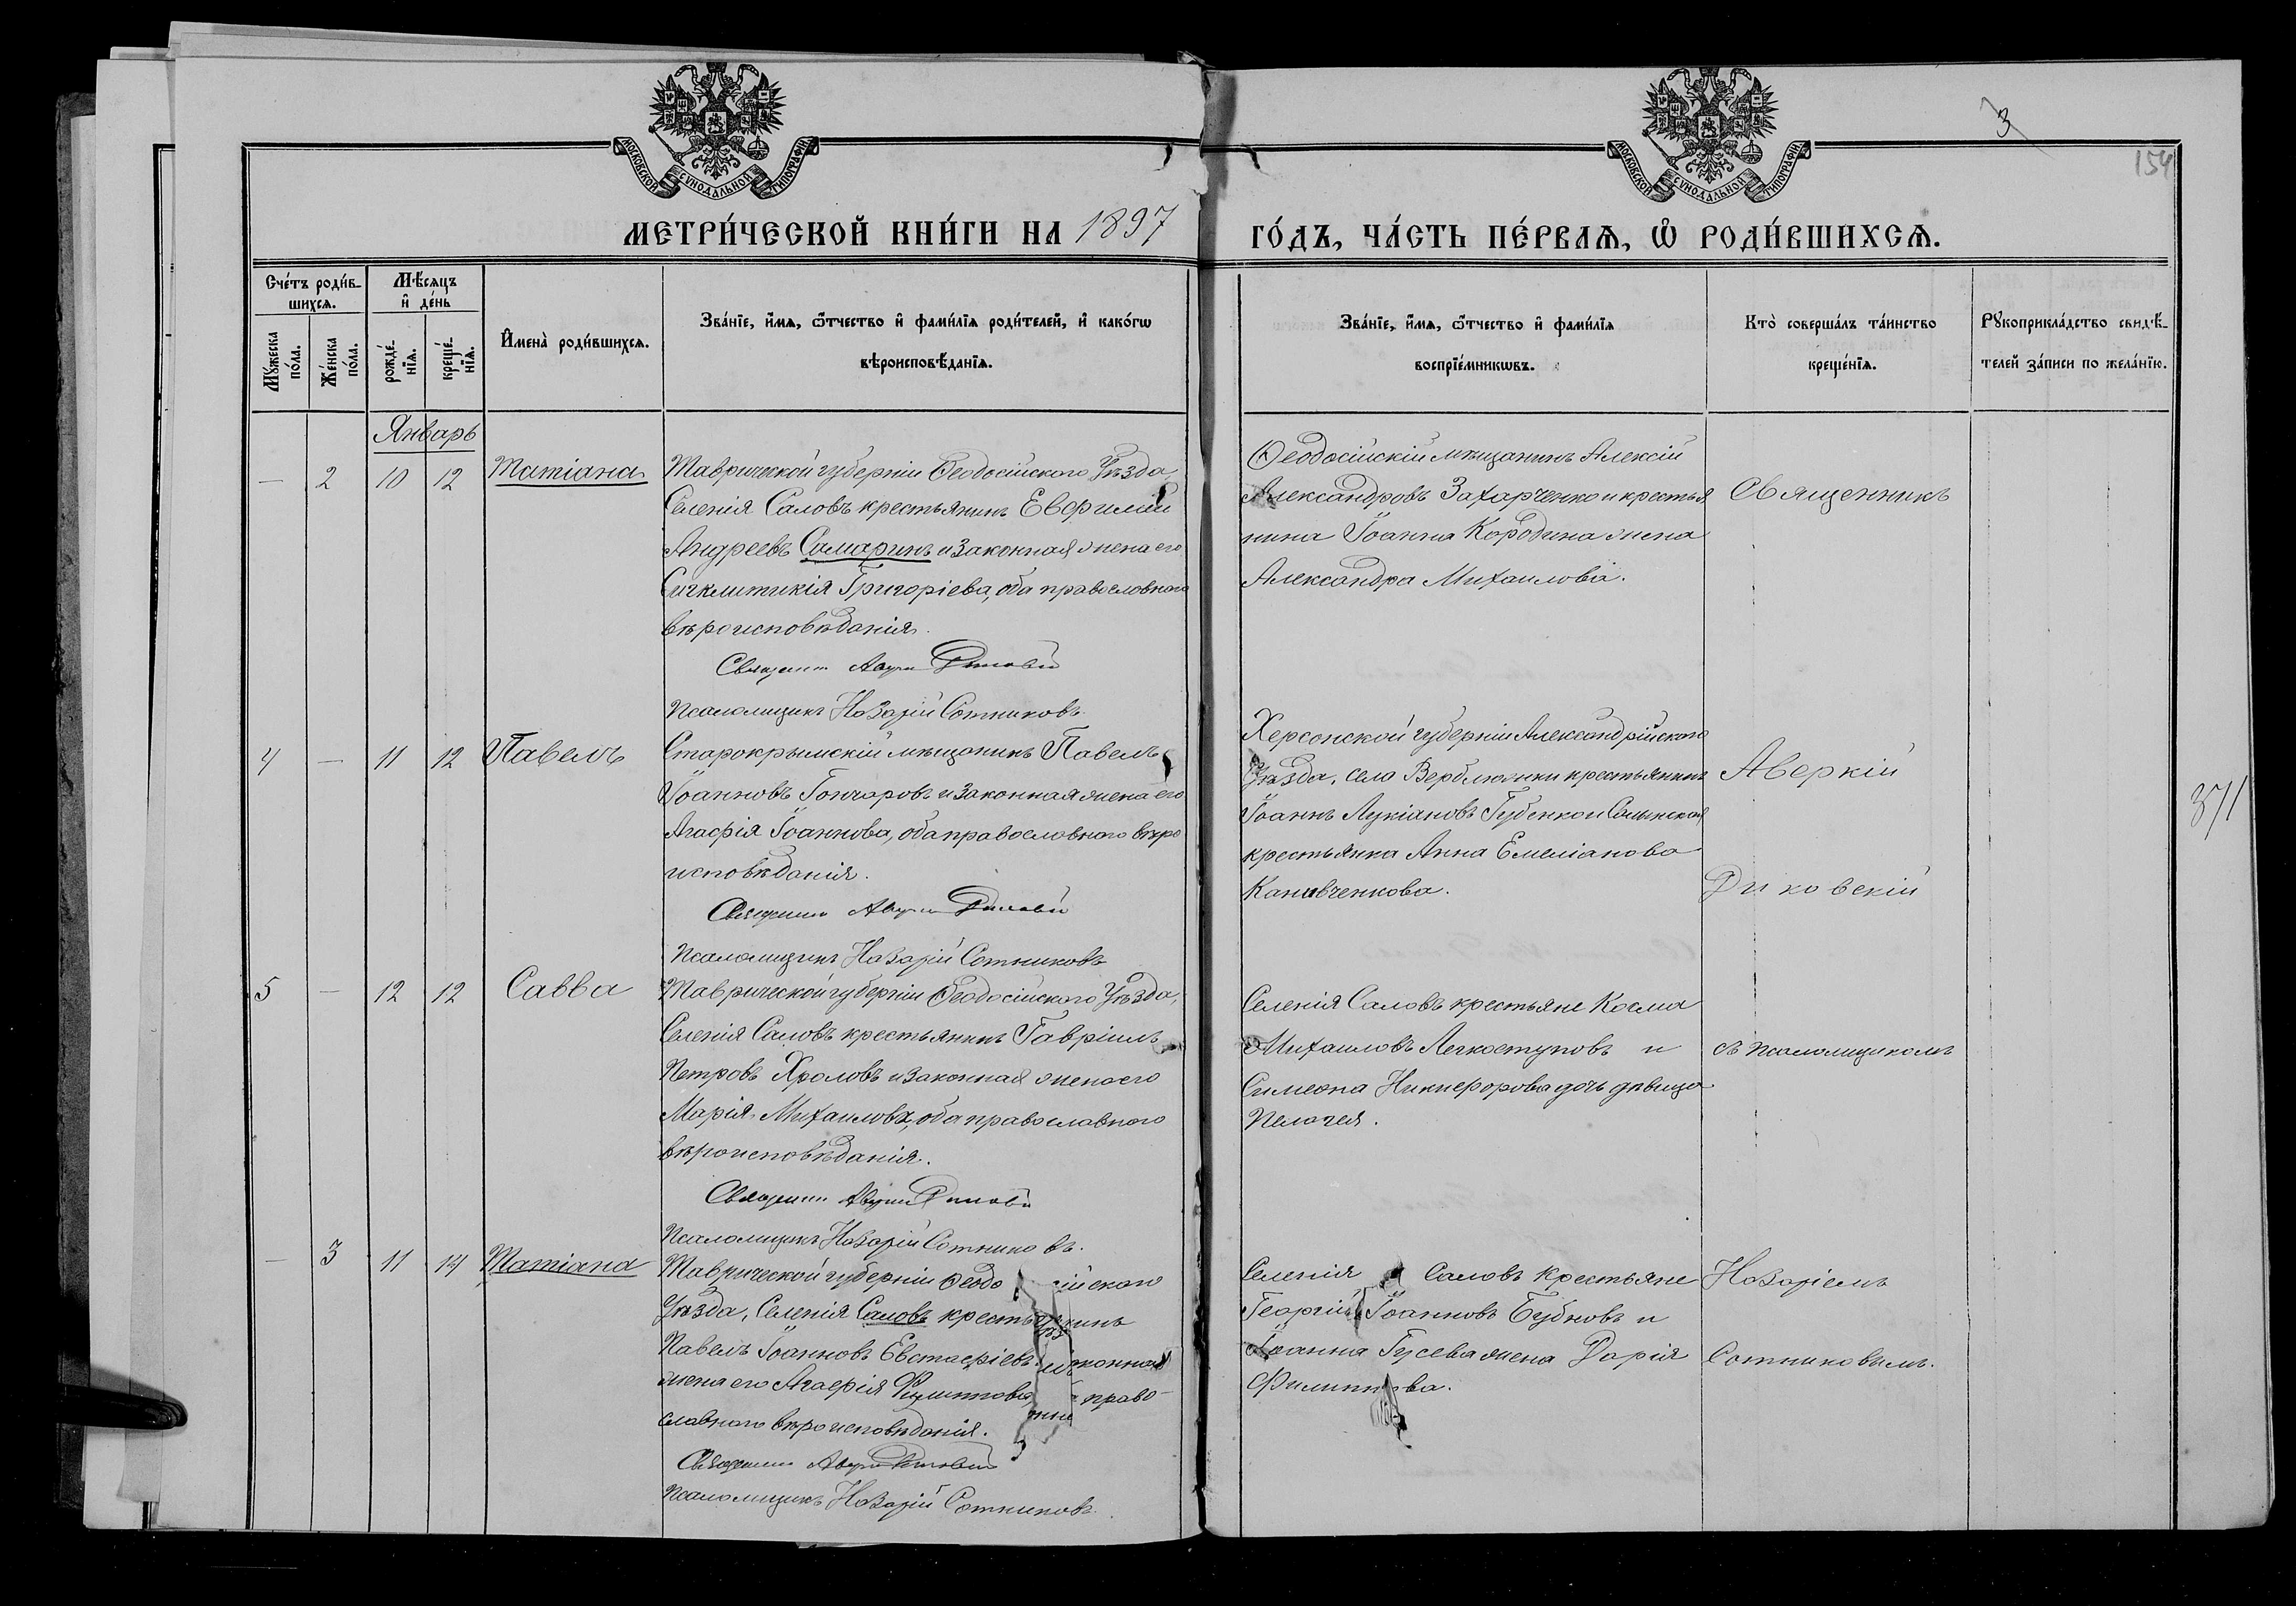 МОСКОВСКОЙ СУНОДАЛЬНОЙ ТИПОГРАФІИ
МОСКОВСКОЙ СУНОДАЛЬНОЙ ТИПОГРАФІИ
3
154
МЕТРИ́ЧЕСКОЙ КНИ́ГИ НА 1897
ГО́ДЪ, ЧА́СТЬ ПЕ́РВАѦ, Ѡ РОДИ́ВШИХСѦ.
Сче́тъ роди́в-
шихсѧ.
Мѣ́сяцъ
и҆ де́нь
Мꙋ́жеска
по́ла.
Же́нска
по́ла.
рожде́-
нїѧ.
креще́-
нїѧ.
И҆мена̀ роди́вшихсѧ.
Зва́нїе, и҆́мѧ, ѻ҆́тчество и҆ фами́лїѧ роди́телей, и҆ како́гѡ
вѣроисповѣ́данїѧ.
Зва́нїе, и҆́мѧ, ѻ҆́тчество и҆ фами́лїѧ
воспрїе́мникѡвъ.
Кто̀ соверша́лъ та́инство
креще́нїѧ.
Рꙋкоприкла́дство свидѣ́-
телей за́писи по жела́нїю.
Январь
— 2 10 12 Татіана
Таврической губерніи Ѳеодосійскаго Уѣзда
Селенія Саловъ крестьянинъ Евфимій
Андреевъ Самаринъ и законная жена его
Григоріева, оба православнаго
вѣроисповѣданія.
Священникъ
Псаломщикъ Назарій Сотниковъ
Ѳеодосійскій мѣщанинъ Алексій
Александровъ Захарченко и крестья
нина Іоанна Кородина жена
Александра Михаилова.
Священникъ
4 — 11 12 Павелъ
Старокрымскій мѣщанинъ Павелъ
Іоанновъ Гончаровъ и законная жена его
Агафія Іоаннова, оба православнаго вѣро
исповѣданія.
Священникъ
Псаломщикъ Назарій Сотниковъ
Херсонской губерніи Александрійскаго
Уѣзда, села Верблюжки крестьянинъ
Іоаннъ Лукіановъ Губенко и
крестьянка Анна Емеліанова
Канивченкова.
Аверкій
Диковскій
371
5 — 12 12 Савва
Таврической губерніи Ѳеодосійскаго Уѣзда,
Селенія Саловъ крестьянинъ Гавріилъ
Петровъ Хроловъ и законная жена его
Марія Михаилова, оба православнаго
вѣроисповѣданія.
Священникъ
Псаломщикъ Назарій Сотниковъ.
Селенія Саловъ крестьяне Косма
Михаиловъ Легкоступовъ и
Симеона Никифорова дочь дѣвица
Пелагея.
съ псаломщикомъ
— 3 11 14 Татіана
Таврической губерніи Ѳеодосійскаго
Уѣзда, Селенія Саловъ крестьянинъ
Павелъ Іоанновъ Евстафіевъ законная
жена его Агафія Филиппова право-
славнаго вѣроисповѣданія.
Священникъ
Псаломщикъ Назарій Сотниковъ.
Селенія Саловъ крестьяне
Георгій Іоанновъ Бубновъ и
Іоанна Гусева жена Дарія
Филиппова.
Назаріемъ
Сотниковымъ.